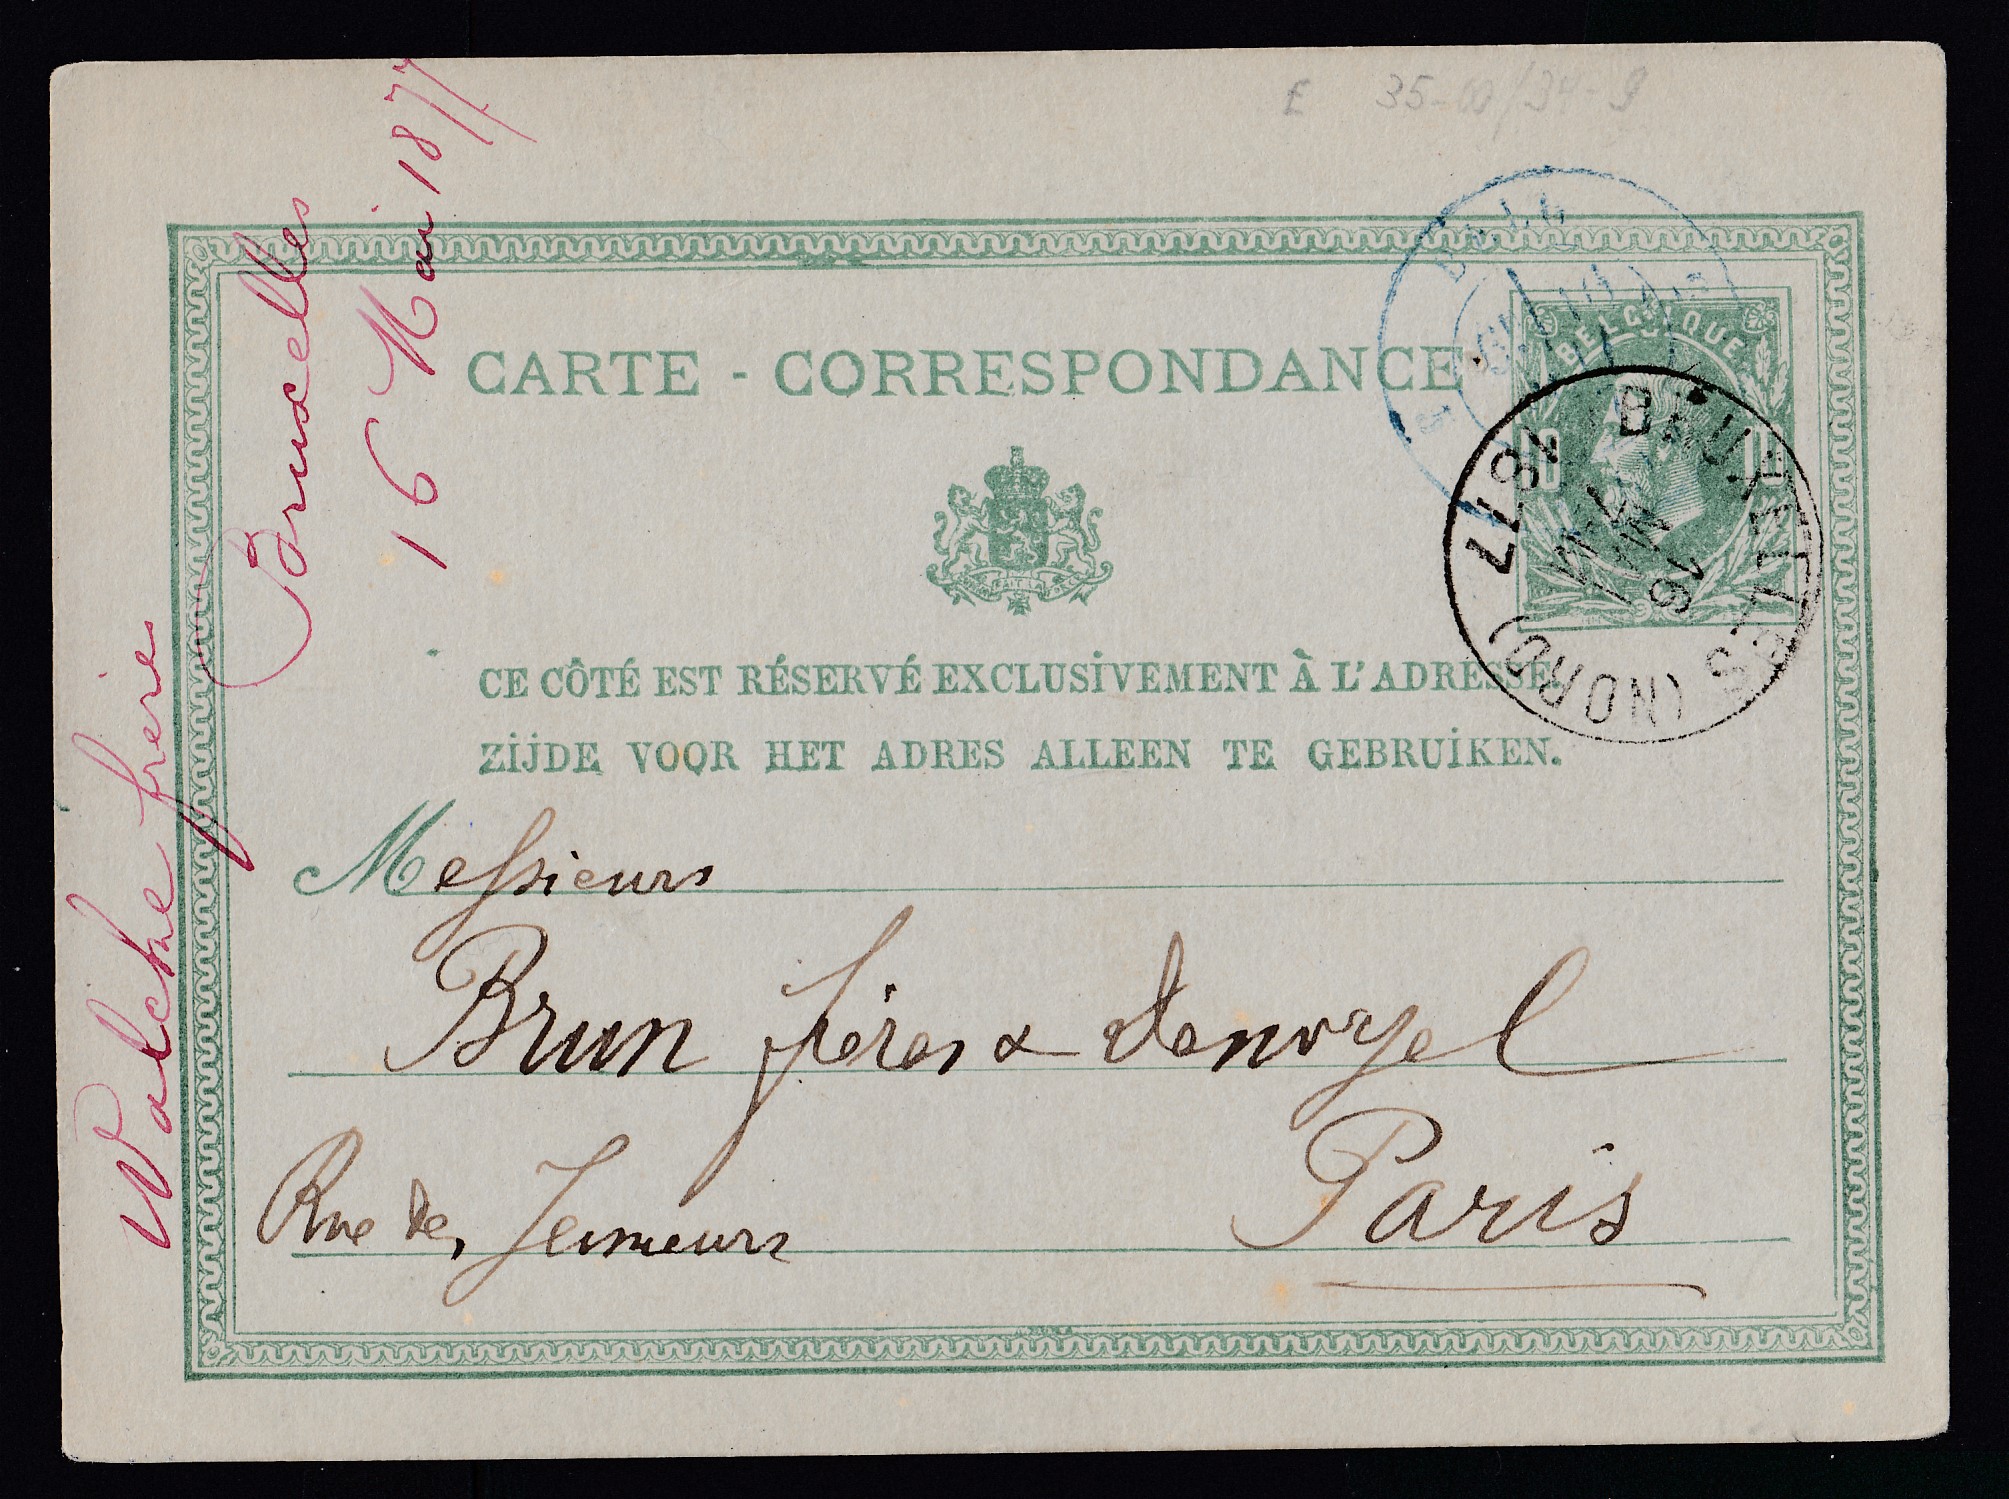 E 35-60/34-9
Bruxelles
16 Mai 1877
Walckne frères
CARTE - CORRESPONDANCE
BELGIQUE
10
BRUXELLES (NORD) 1877
16 MAI
CE CÔTÉ EST RÉSERVÉ EXCLUSIVEMENT À L'ADRESSE.
ZIJDE VOOR HET ADRES ALLEEN TE GEBRUIKEN.
Messieurs
Brun frères & Denoyel
Rue des Jeuneurs Paris